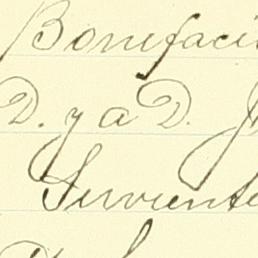 Bonifaci
D. y a D. J
Sirviente